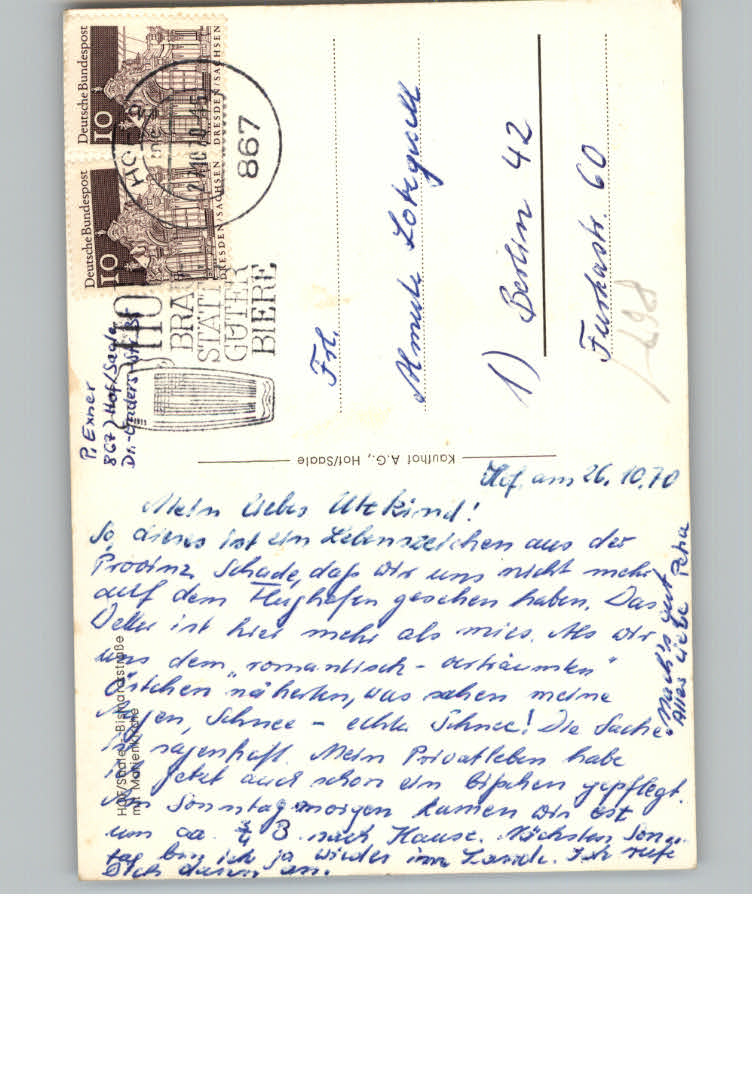 Deutsche Bundespost
10
DRESDEN/SACHSEN
Deutsche Bundespost
10
DRESDEN/SACHSEN
867
HO
BRA
STAT
GUTER
BIERE
P. Exner
867) Hof/Saale
Frl.
1) Berlin 42
Furkastr. 60
Kaufhof A.G., Hof/Saale
HOF/Saale - Bismarckstraße
mit Marienkirche
Hof, am 26.10.70
Mein liebes Utekind!
So, dieses ist ein Lebenszeichen aus der
Provinz. Schade, daß wir uns nicht mehr
auf dem Flughafen gesehen haben. Das
Wetter ist hier mehr als mies. Als wir
uns dem "romantisch-verträumten"
Örtchen näherten, was sahen meine
Augen, Schnee - echter Schnee! Die Sache
ist sagenhaft. Mein Privatleben habe
ich jetzt auch schon ein bißchen gepflegt.
Am Sonntagmorgen kamen wir erst
um ca. 3/4 3 nach Hause. Nächsten Sonn-
tag bin ich ja wieder im Lande. Ich rufe
Dich dann an.
Mach's gut
Alles Liebe Petra